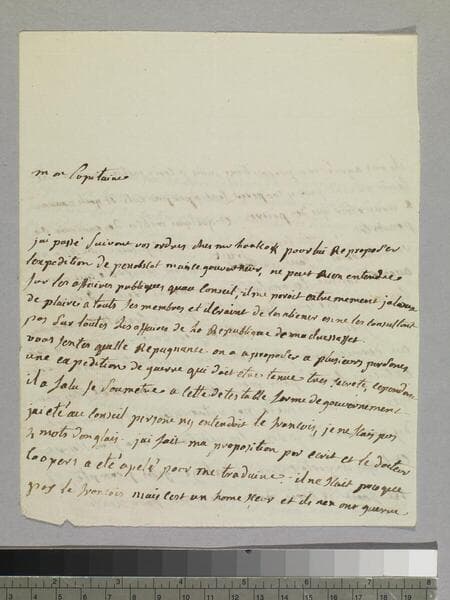 mon Capitaine
jai passé suivant vos ordres ches mr hankok pour lui Reproposer
lexpedition de penobscot mais ce gouverneur, ne peut Rien entendre
sur les affaires publiques quau Conseil, il ne pouroit autrement jalouse
de plaire a touts ses membres et il craint de les aliener en ne les Consultant
pas sur toutes les affaires de la Republique de machussasset
vous sentes quelle Repugnance on a a proposer a plusieurs personnes
une expedition de guerre qui doit etre tenue tres secrete, cependant
il a falu se soumetre a cette detestable forme de gouvernement
jai eté au Conseil persone ny entendoit le francois, je ne scais pas
4 mots danglois. jai fait ma proposition par ecrit et le docteur
Coopers a eté apelé pour me traduire. il ne scait presque
pas le francois mais cest un home sur et ils nen ont guerre
1 2 3 4 5 6 7 8
3 4 5 6 7 8 9 10 11 12 13 14 15 16 17 18 19